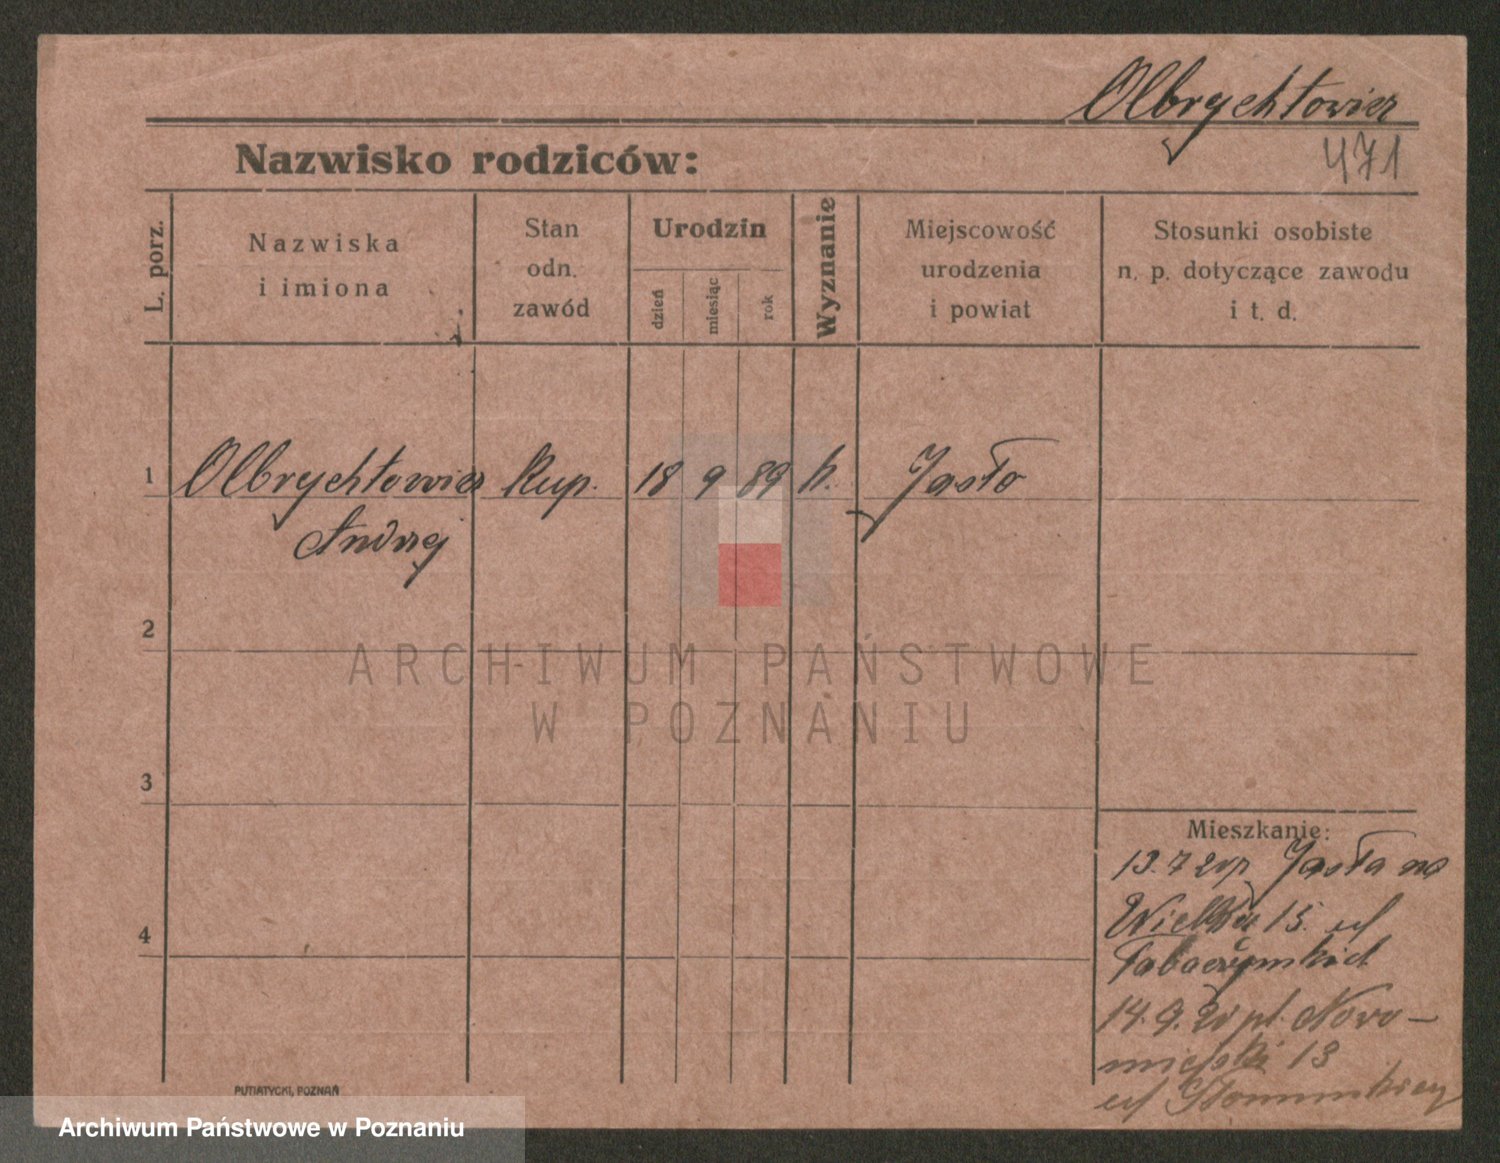 Olbrychtowicz
471
Nazwisko rodziców:
L. porz.
Nazwiska
i imiona
Stan
odn.
zawód
Urodzin
dzień
miesiąc
rok
Wyznanie
Miejscowość
urodzenia
i powiat
Stosunki osobiste
n. p. dotyczące zawodu
i t. d.
1 Olbrychtowicz kup. 18 9 89 k. Jasło
Andrzej
2
3
4
Mieszkanie:
13.7 Jasła na
Wielkie 15.
14.9. pl. Nowo-
miejski 13
PUTIATYCKI, POZNAŃ
ARCHIWUM PAŃSTWOWE
W POZNANIU
Archiwum Państwowe w Poznaniu